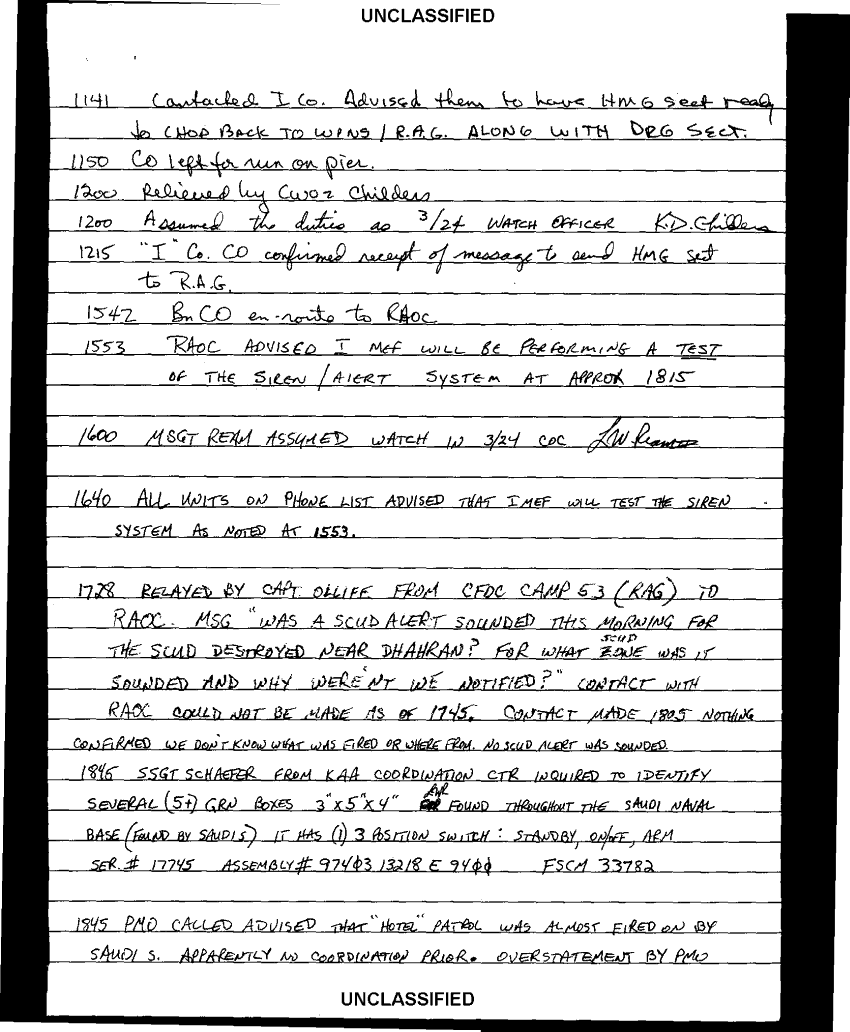 UNCLASSIFIED
1141 Contacted I Co. Advised them to have HMG sect ready
to CHOP BACK TO WPNS / R.A.G. ALONG WITH DRG SECT.
1150 CO left for run on pier.
1200 Relieved by CWO2 Childers
1200 Assumed the duties as 3/24 WATCH OFFICER K.D. Childers
1215 "I" Co. CO confirmed receipt of message to send HMG sect
to R.A.G.
1542 Bn CO en-route to RAOC
1553 RAOC ADVISED I MEF WILL BE PERFORMING A TEST
OF THE SIREN / ALERT SYSTEM AT APPROX 1815
1600 MSGT REAM ASSUMED WATCH IN 3/24 COC LW Ream
1640 ALL UNITS ON PHONE LIST ADVISED THAT I MEF WILL TEST THE SIREN
SYSTEM AS NOTED AT 1553.
1728 RELAYED BY CAPT. OLLIFF FROM CFDC CAMP 53 (RAG) TO
RAOC. MSG "WAS A SCUD ALERT SOUNDED THIS MORNING FOR
THE SCUD DESTROYED NEAR DHAHRAN? FOR WHAT SCUD ZONE WAS IT
SOUNDED AND WHY WERE'NT WE NOTIFIED?" CONTACT WITH
RAOC COULD NOT BE MADE AS OF 1745. CONTACT MADE 1805 NOTHING
CONFIRMED WE DON'T KNOW WHAT WAS FIRED OR WHERE FROM. NO SCUD ALERT WAS SOUNDED.
1845 SSGT SCHAEFER FROM KAA COORDINATION CTR INQUIRED TO IDENTIFY
SEVERAL (5+) GRN BOXES 3"x5"x4" FOUND THROUGHOUT THE SAUDI NAVAL
BASE (FOUND BY SAUDIS) IT HAS (1) 3 POSITION SWITCH: STANDBY, ON/OFF, ARM
SER. # 17745 ASSEMBLY # 97403 13218 E 9400 FSCM 33782
1845 PMO CALLED ADVISED THAT "HOTEL" PATROL WAS ALMOST FIRED ON BY
SAUDI S. APPARENTLY NO COORDINATION PRIOR. OVERSTATEMENT BY PMO
UNCLASSIFIED